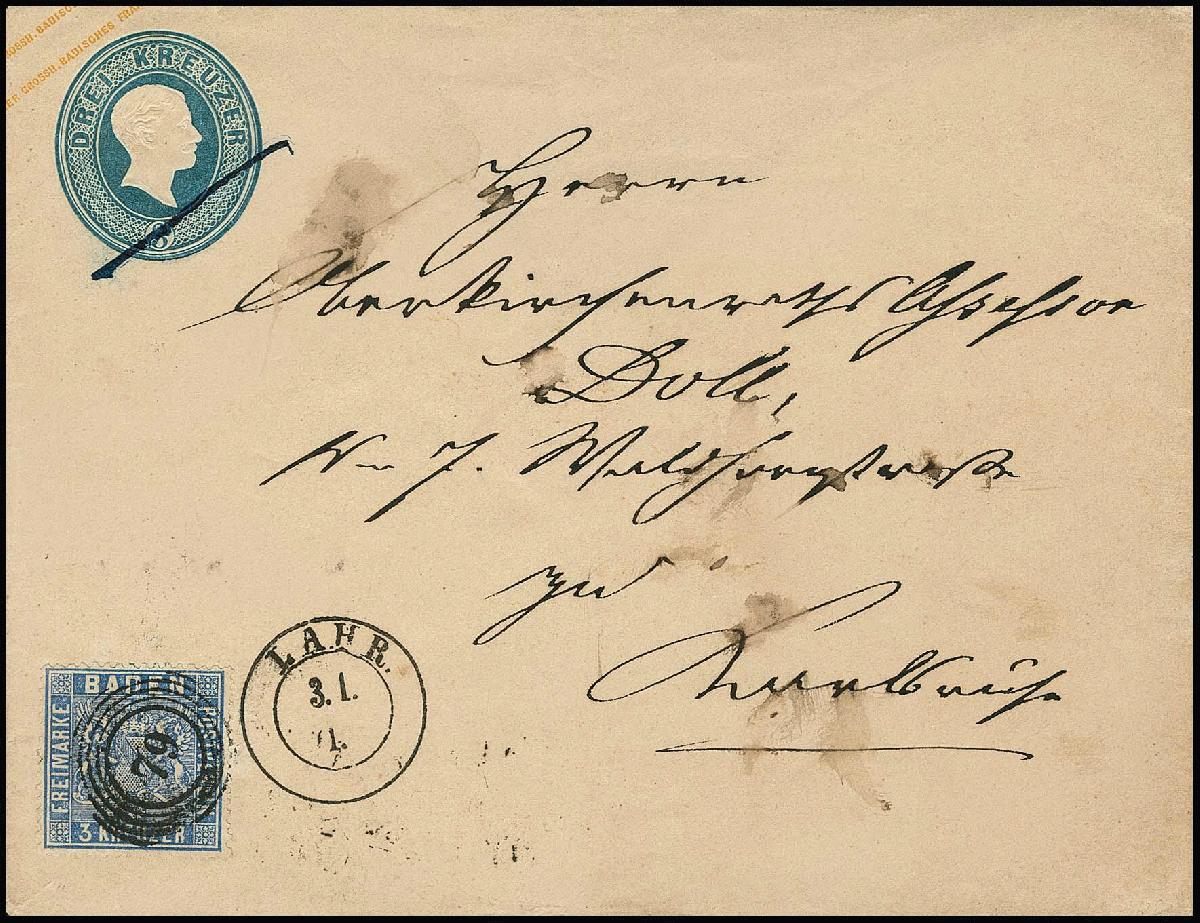 GROSSH. BADISC
ER GROSSH. BADISCHES FRA
DREI KREUZER
3
Herrn
Oberkirchenraths Assessor
Doll,
No 7. Waldhornstraße
zu
Karlsruhe
LAHR.
3. 1.
1.
BADEN
FREIMARKE
3 KREUZER
79